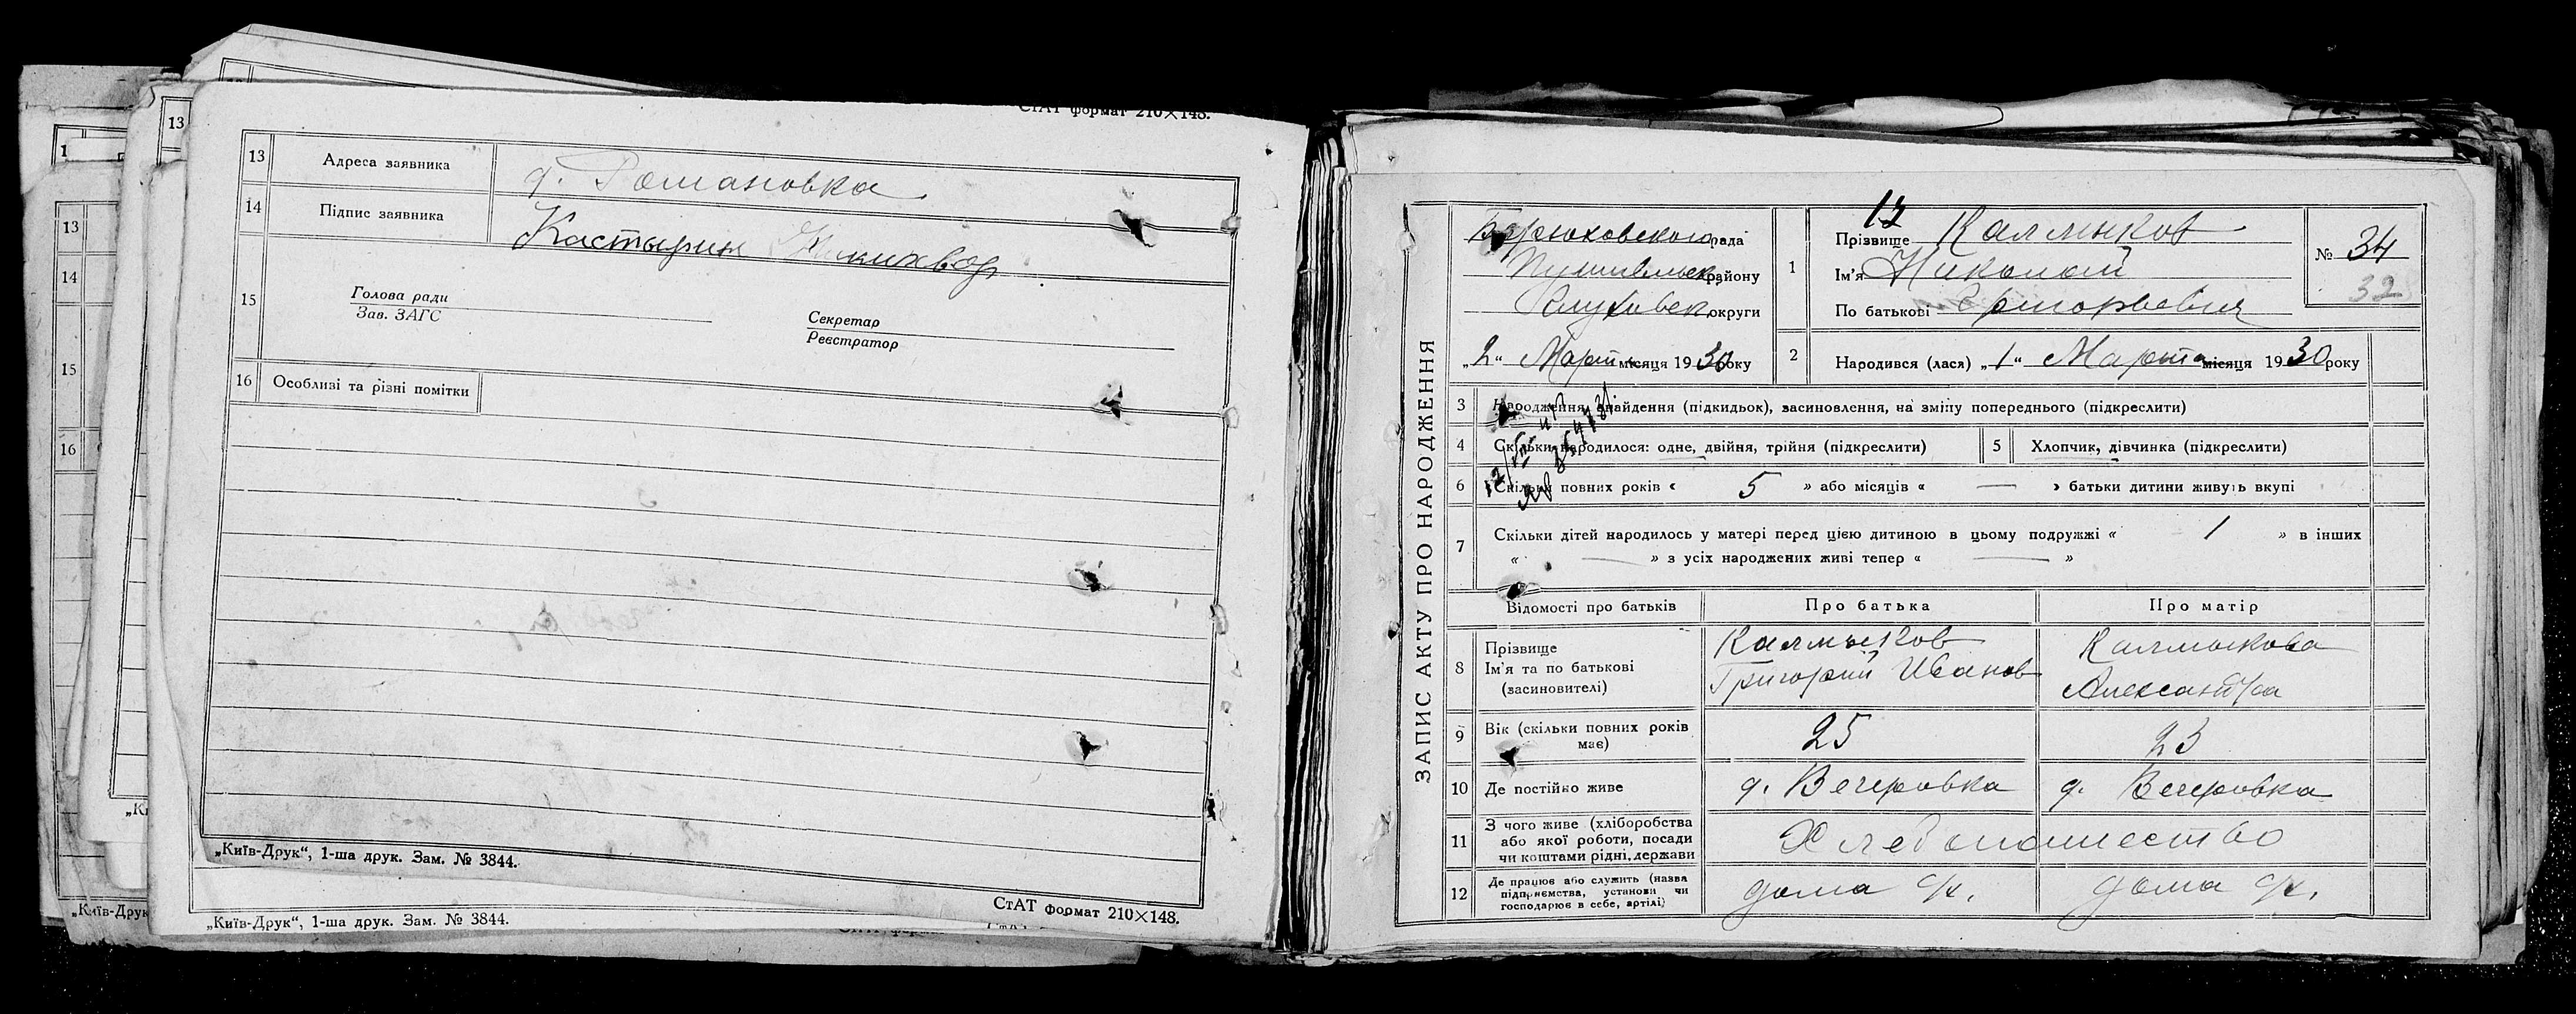 СтАТ формат 210×148.
13 Адреса заявника д. Романовка
14 Підпис заявника Кастырин
15 Голова ради
Зав. ЗАГС
Секретар
Реєстратор
16 Особливі та різні помітки
„Київ-Друк“, 1-ша друк. Зам. № 3844.
СтАТ формат 210×148.
„Київ-Друк“, 1-ша друк. Зам. № 3844.
13
14
15
16
13
ЗАПИС АКТУ ПРО НАРОДЖЕННЯ
12
Бирюковского рада
Путивльск району
Глуховск округи
„2“ Март місяця 1930 року
1 Прізвище Калмыков
Ім'я Николай
По батькові Григорьевич
№ 34
32
2 Народився (лася) „1“ Марта місяця 1930 року
3 Народження, знайдення (підкидьок), засиновлення, на зміну попереднього (підкреслити)
4 Скільки народилося: одне, двійня, трійня (підкреслити)
5 Хлопчик, дівчинка (підкреслити)
6 Скільки повних років « 5 » або місяців « — » батьки дитини живуть вкупі
7 Скільки дітей народилось у матері перед цією дитиною в цьому подружжі « 1 » в інших
« — » з усіх народжених живі тепер « — »
Відомості про батьків Про батька Про матір
8 Прізвище
Ім'я та по батькові
(засиновителі)
Калмыков
Григорий Иванов
Калмыкова
Александра
9 Вік (скільки повних років має) 25 23
10 Де постійно живе д. Вечеровка д. Вечеровка
11 З чого живе (хліборобства
або якої роботи, посади
чи коштами рідні, держави
Хлебопашество
12 Де працює або служить (назва
підприємства, установи чи
господарює в себе, артілі)
дома с/х. дома с/х.